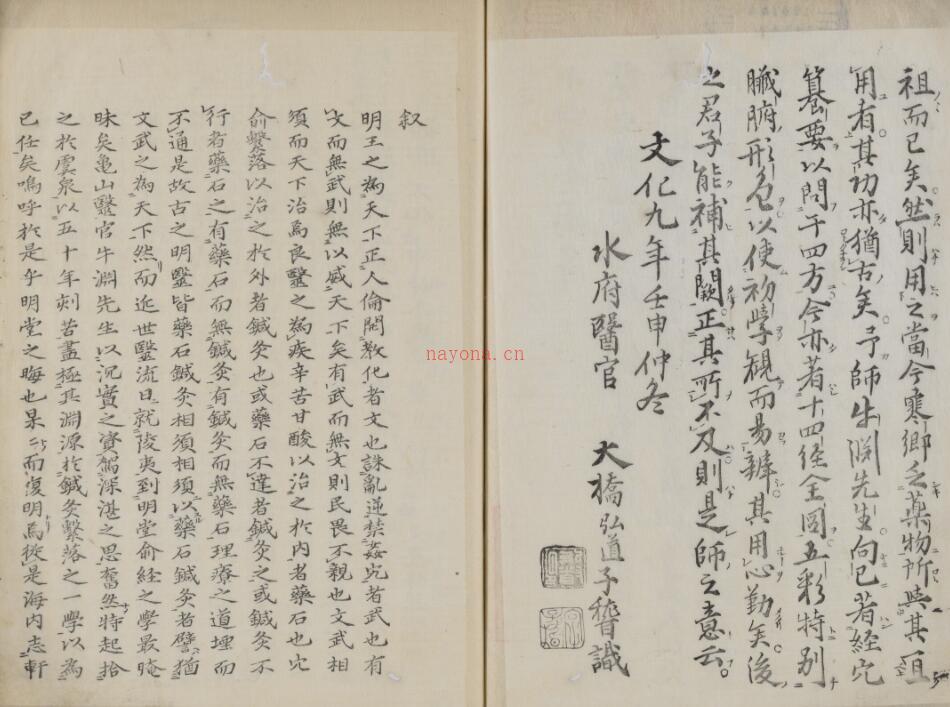 祖而已矣然則用之當今寒鄉乏藥物所與其
用者其功亦猶古矣予師牛淵先生向已著經穴
纂要以問于四方今亦著十四経全圖五彩特別
臟腑形色以使初學觀而易辨其用心勤矣後
之君子能補其闕正其所不及則是師之意云
文化九年壬申仲冬
水府醫官 大橋弘道子
識
叙
明王之為天下正人倫開教化者文也誅亂逆禁姦宄者武也有
文而無武則無以威天下矣有武而無文則民畏不親也文武相
須而天下治焉良醫之為疾辛苦甘酸以治之於内者藥石也穴
俞繫落以治之於外者鍼灸也或藥石不達者鍼灸之或鍼灸不
行者藥石之有藥石而無鍼灸有鍼灸而無藥石理療之道埋而
不通是故古之明醫皆藥石鍼灸相須相須以藥石鍼灸者譬猶
文武之為天下然而近世醫流日就陵夷到明堂俞経之學最晻
昧矣亀山醫官牛淵先生以沉實之資騁深湛之思奮然特起拾
之於虞泉以五十年刻苦盡極其淵源於鍼灸繫落之一學以為
己任矣嗚呼於是乎明堂之晦也杲二而復明焉從是海内志軒
nayona.cn